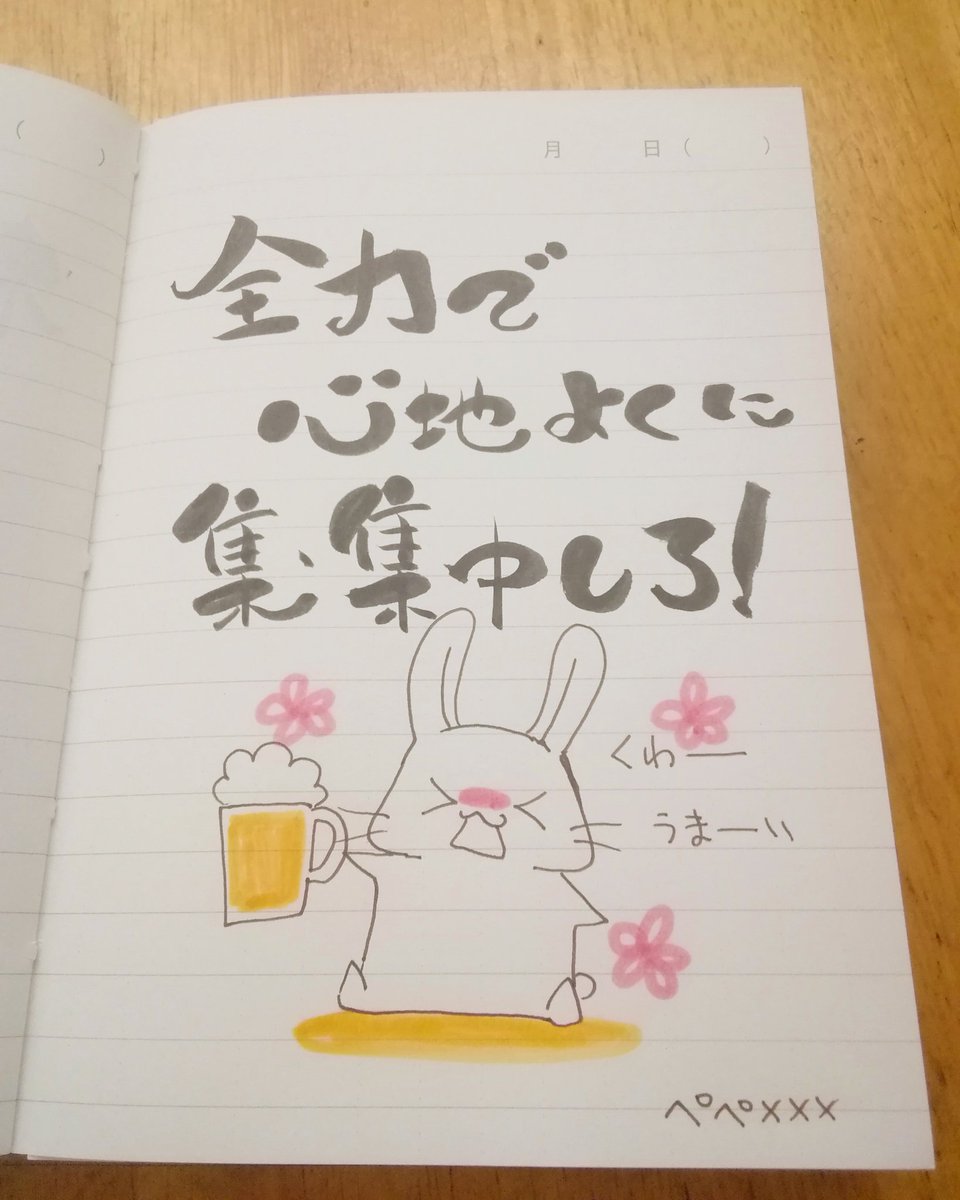 (
)
月 日 ( )
全力で
心地よくに
集集中しろ!
くわー
うまーい
ペペ×××